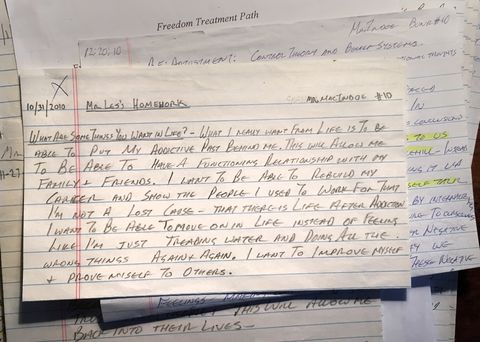 Freedom Treatment Path
12:20:10
MacIndoe Bunk #10
Re: Adjustment: Control Theory and Belief Systems
10/31/2010 Mr. Les's Homework MacIndoe #10
What Are Some Things You Want in Life? - What I really want From Life Is To Be
Able To Put My Addictive Past Behind Me. This Will Allow Me
To Be Able To Have A Functioning Relationship with my
Family + Friends. I want To Be Able To Rebuild my
Career and Show the People I Used To Work For That
I'm Not A Lost Cause - That there is Life After Addiction
I want To Be Able To Move on in Life instead of Feeling
Like I'm Just Treading Water and Doing All the
wrong things Again + Again. I want To Improve Myself
+ Prove Myself To Others.
To us
By internal
Negative
We
These Negative
H-27
Feelings
This Will Allow me
Back Into Their Lives -